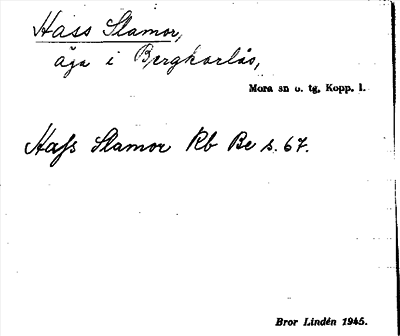 Hass Slamor,
äga i Bergkarlås,
Mora sn o. tg, Kopp. l.
Hass Slamor Rb Be s. 67.
Bror Lindén 1945.